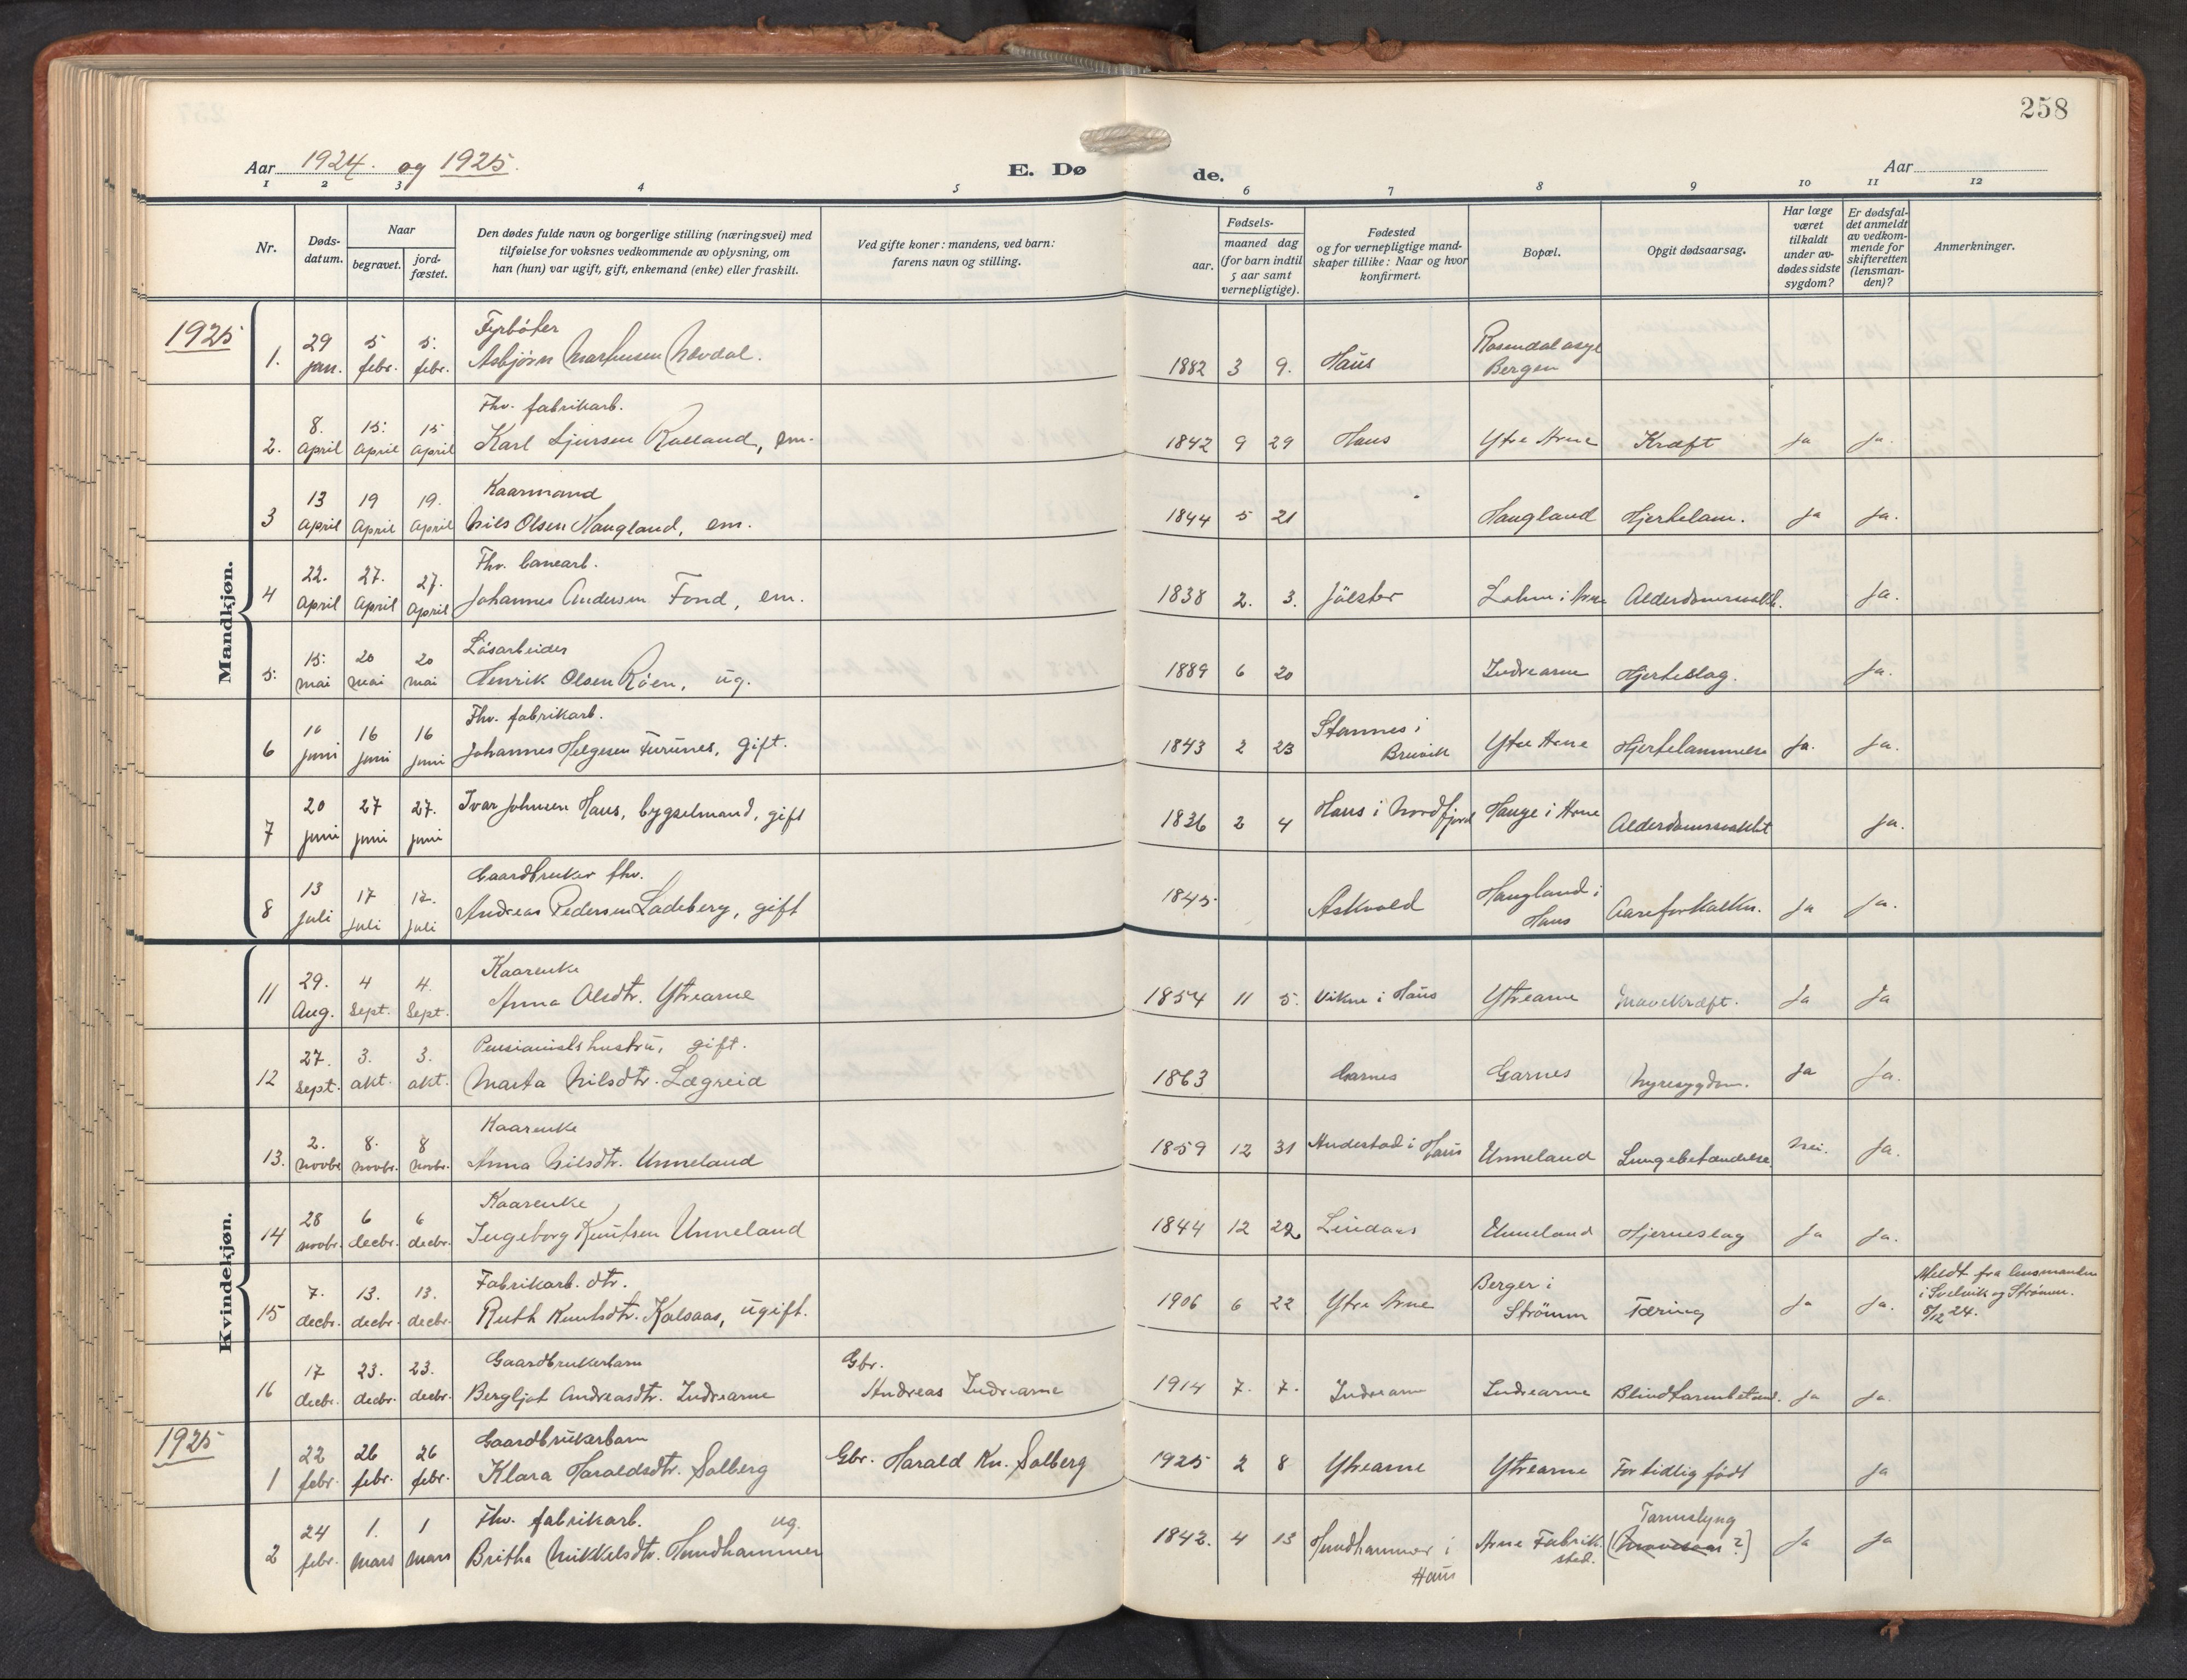 258
Aar 1924. og 1925.
E. Dø de.
Aar
1 2 3 4 5 6 7 8 9 10 11 12
Nr.
Døds-
datum.
Naar
begravet.
jord-
fæstet.
Den dødes fulde navn og borgerlige stilling (næringsvei) med
tilføielse for voksnes vedkommende av oplysning, om
han (hun) var ugift, gift, enkemand (enke) eller fraskilt.
Ved gifte koner: mandens, ved barn:
farens navn og stilling.
Fødsels-
aar.
maaned dag
(for barn indtil
5 aar samt
vernepligtige).
Fødested
og for vernepligtige mand-
skaper tillike: Naar og hvor
konfirmert.
Bopæl.
Opgit dødsaarsag.
Har læge
været
tilkaldt
under av-
dødes sidste
sygdom?
Er dødsfal-
det anmeldt
av vedkom-
mende for
skifteretten
(lensman-
den)?
Anmerkninger.
Mandkjøn.
1925
Fyrbøter
1. 29 jan. 5 febr. 5. febr. Asbjørn Markusen Nævdal. 1882 3 9. Haus Rosendal asyl Bergen
Fhv. fabrikarb.
2. 8. April 15: April 15 April Karl Sjursen Kalland, em. 1842 9 29 Haus Ytre Arne Kræft Ja Ja.
Kaarmand
3 13 April 19 April 19. April Nils Olsen Haugland, em. 1844 5 21 Haugland Hjertelam. Ja Ja.
Fhv. banearb.
4 22. April 27. April 27. April Johannes Andersen Fond, em. 1838 2. 3. Jölster i Arne Alderdomssvakh. Ja.
Lösarbeider
5. 15: mai 20 mai 20 mai Henrik Olsen Röen, ug. 1889 6 20 Indrearne Hjerteslag. Ja.
Fhv. fabrikarb.
6 juni 16 juni 16 juni Johannes Helgesen Furunes, gift. 1843 2 23 Stamnes i Bruvik Ytre Arne Hjertelammelse Ja. Ja.
7 20 juni 27 juni 27. juni Ivar Johnsen Haus, bygselmand, gift 1836 2 4 Haus i Nordfjord Hauge i Arne Alderdomssvakhet Ja.
Gaardbruker fhv.
8 13 juli 17 juli 17. juli Andreas Pedersen Ladeberg, gift 1845 Askvold Haugland i Haus Aareforkalkn. Ja Ja.
Kvindekjøn.
Kaarenke
11 29. Aug. 4 Sept. 4. Sept. Anna Olsdtr. Ytrearne 1854 11 5. Vikne i Haus Ytrearne Mavekræft. Ja Ja
Pensionistshustru, gift.
12 27. Sept. 3. okt. 3. okt. Marta Nilsdtr. Lægreid 1863 Garnes Garnes Nyresygdom. Ja Ja.
Kaarenke
13. 2. novbr 8. novbr. 8 novbr. Anna Nilsdtr. Unneland 1859 12 31 i Haus Unneland Lungebetændelse. Nei. Ja.
Kaarenke
14 28 novbr. 6 decbr. 6 decbr. Ingeborg Knutsen Unneland 1844 12 22 Lindaas Unneland Hjerneslag Ja Ja.
Fabrikarb. dtr.
15 7. decbr. 13. decbr. 13. decbr. Ruth Knutsdtr. Kalsaas, ugift. 1906 6 22 Ytre Arne Berger i Strömm Tæring Ja Ja. Meldt fra lensmanden
i Svelvik og Strömm.
5/12 24.
Gaardbrukerbarn
16 17 decbr. 23. decbr. 23. decbr. Bergljot Andreasdtr. Indrearne Gbr. Andreas Indrearne 1914 7. 7. Indrearne Indrearne Blindtarmbetænd. Ja Ja.
1925
Gaardbrukerbarn
1 22 febr. 26 febr. 26 febr. Klara Haraldsdtr. Solberg Gbr. Harald Kn. Solberg 1925 2 8 Ytrearne Ytrearne For tidlig födt Ja
Fhv. fabrikarb. ug.
2 24 febr. 1. mars 1 mars Britha Mikkelsdtr. Hundhammer 1842. 4 13 Hundhammer i Haus Arne Fabrik. sted. Tarmslyng (Mavesaar?) Ja Ja